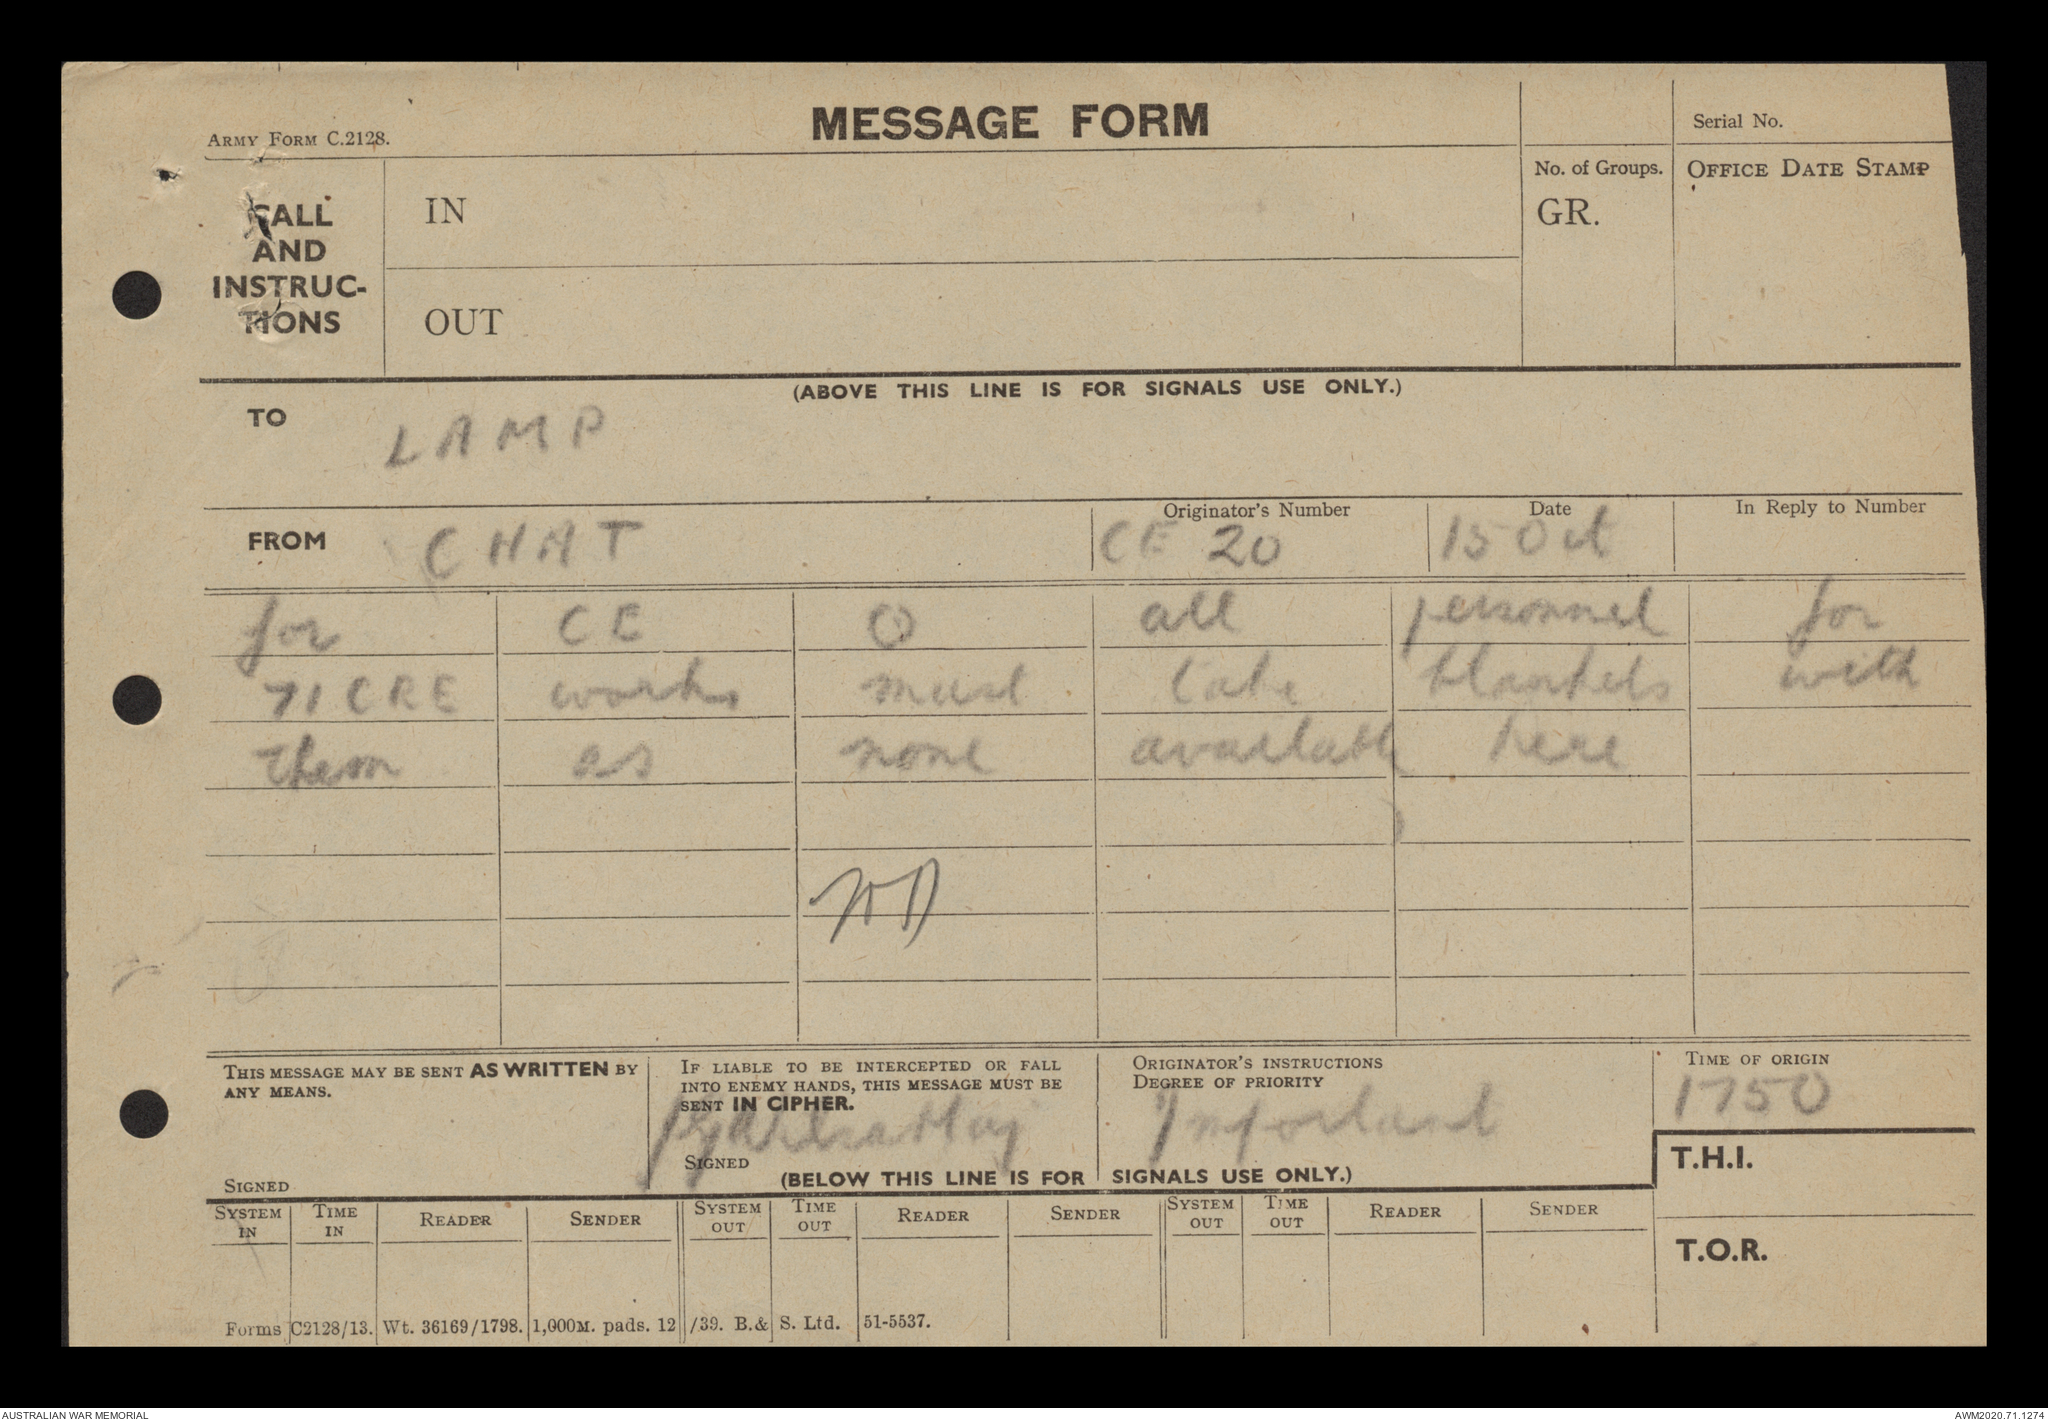 MESSAGE FORM
ARMY FORM C.2128.
Serial No.
CALL AND INSTRUC-TIONS
IN
OUT
No. of Groups.
GR.
OFFICE DATE STAMP
(ABOVE THIS LINE IS FOR SIGNALS USE ONLY.)
TO LAMP
FROM CHAT
Originator's Number CE 20
Date 15 Oct
In Reply to Number
for CE O all personnel for
71 CRE works must take blankets with
them as none available here
THIS MESSAGE MAY BE SENT AS WRITTEN BY
ANY MEANS.
SIGNED
IF LIABLE TO BE INTERCEPTED OR FALL
INTO ENEMY HANDS, THIS MESSAGE MUST BE
SENT IN CIPHER.
Maj
SIGNED
ORIGINATOR'S INSTRUCTIONS
DEGREE OF PRIORITY
Important
TIME OF ORIGIN
1750
T.H.I.
(BELOW THIS LINE IS FOR SIGNALS USE ONLY.)
SYSTEM IN TIME IN READER SENDER SYSTEM OUT TIME OUT READER SENDER SYSTEM OUT TIME OUT READER SENDER
T.O.R.
Forms C2128/13. Wt. 36169/1798. 1,000M. pads. 12/39. B.& S. Ltd. 51-5537.
AUSTRALIAN WAR MEMORIAL
AWM2020.71.1274